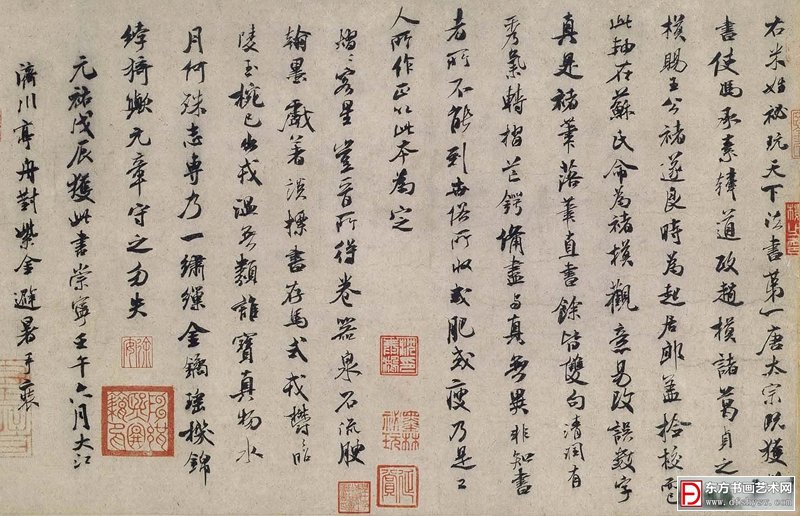 右米姓秘玩天下法書第一唐太宗既獲
書使馮承素韓道政趙模諸葛貞之
模賜王公褚遂良時為起居郎蓋檢校而已
此軸在蘇氏命為褚模觀意易改誤數字
真是褚筆落筆直書餘皆雙勾清潤有
秀氣轉摺芒鍔備盡與真無異非知書
者所不能到世俗所收或肥或瘦乃是工
人所作正以此本為定
熠熠客星豈晉所得卷器泉石流腴
翰墨戲著談標書存馬式鬱昭
陵玉椀已出戎溫無類誰寶真物水
月何殊志專乃一繡繅金鐍瑤機錦
綍猗歟元章守之勿失
元祐戊辰獲此書崇寧壬午六月大江
濟川亭舟對紫金避暑手裝
东方书画艺术网